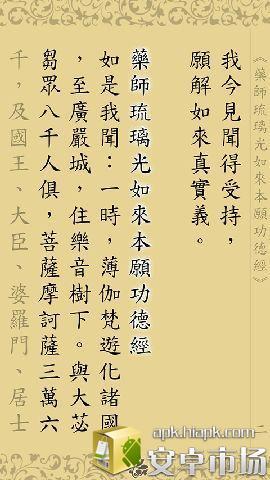 《藥師琉璃光如來本願功德經》
我今見聞得受持，
願解如來真實義。
藥師琉璃光如來本願功德經
如是我聞：一時，薄伽梵遊化諸國
，至廣嚴城，住樂音樹下。與大苾
芻眾八千人俱，菩薩摩訶薩三萬六
千，及國王、大臣、婆羅門、居士
apk.hiapk.com
安卓市场